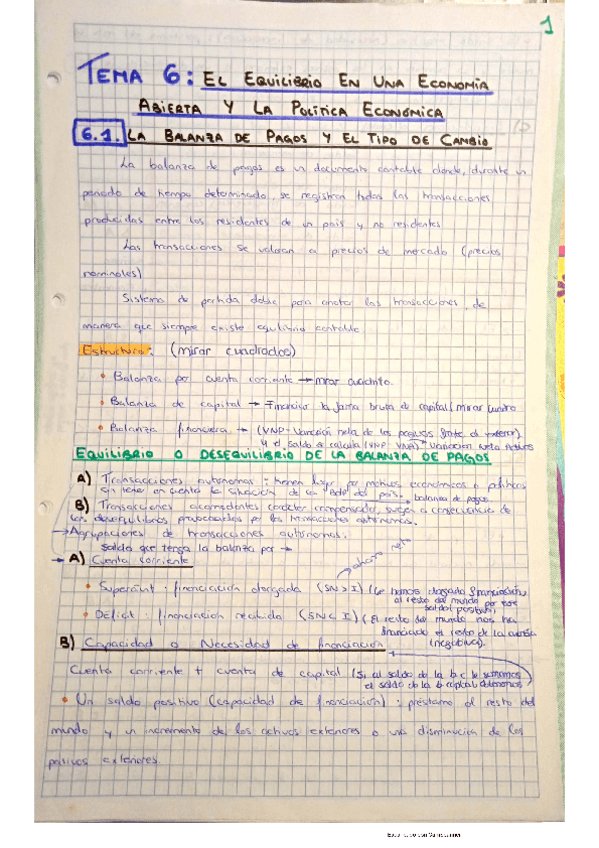 1
TEMA 6: EL EQUILIBRIO EN UNA ECONOMÍA
ABIERTA Y LA POLÍTICA ECONÓMICA
6.1. LA BALANZA DE PAGOS Y EL TIPO DE CAMBIO
La balanza de pagos es un documento contable donde, durante un
periodo de tiempo determinado, se registran todas las transacciones
producidas entre los residentes de un país y no residentes
Las transacciones se valoran a precios de mercado (precios
nominales)
Sistema de partida doble para anotar las transacciones, de
manera que siempre existe equilibrio contable.
Estructura: (mirar cuadrados)
• Balanza por cuenta corriente → mirar
• Balanza de capital → Financiar la bruta de capital (mirar cuadro
• Balanza financiera → (VNP - Variación neta de los pasivos frente al exterior)
y el saldo se calcula (VNP - VNA) → Variación Neta Activos
EQUILIBRIO O DESEQUILIBRIO DE LA BALANZA DE PAGOS
A) Transacciones autónomas: tienen lugar por motivos económicos o políticos
sin tener en cuenta la situación de la BdP del país. → balanza de pagos
B) Transacciones acomodantes carácter compensador, surgen a consecuencia de
los desequilibrios provocados por las transacciones autónomas.
→ Agrupaciones de transacciones autónomas.
saldo que tenga la balanza por →
ahorro neto
A) Cuenta corriente
• Superávit: financiación otorgada (SN > I) (Le hemos otorgado financiación
al resto del mundo por ese
saldo positivo)
• Déficit: financiación recibida (SN < I) (El resto del mundo nos ha
financiado el resto de la cuenta
(negativa).
B) Capacidad o Necesidad de financiación
Cuenta corriente + cuenta de capital (Si al saldo de la b.c le sumamos
el saldo de la b. capital
• Un saldo positivo (capacidad de financiación): préstamo al resto del
mundo y un incremento de los activos exteriores o una disminución de los
pasivos exteriores.